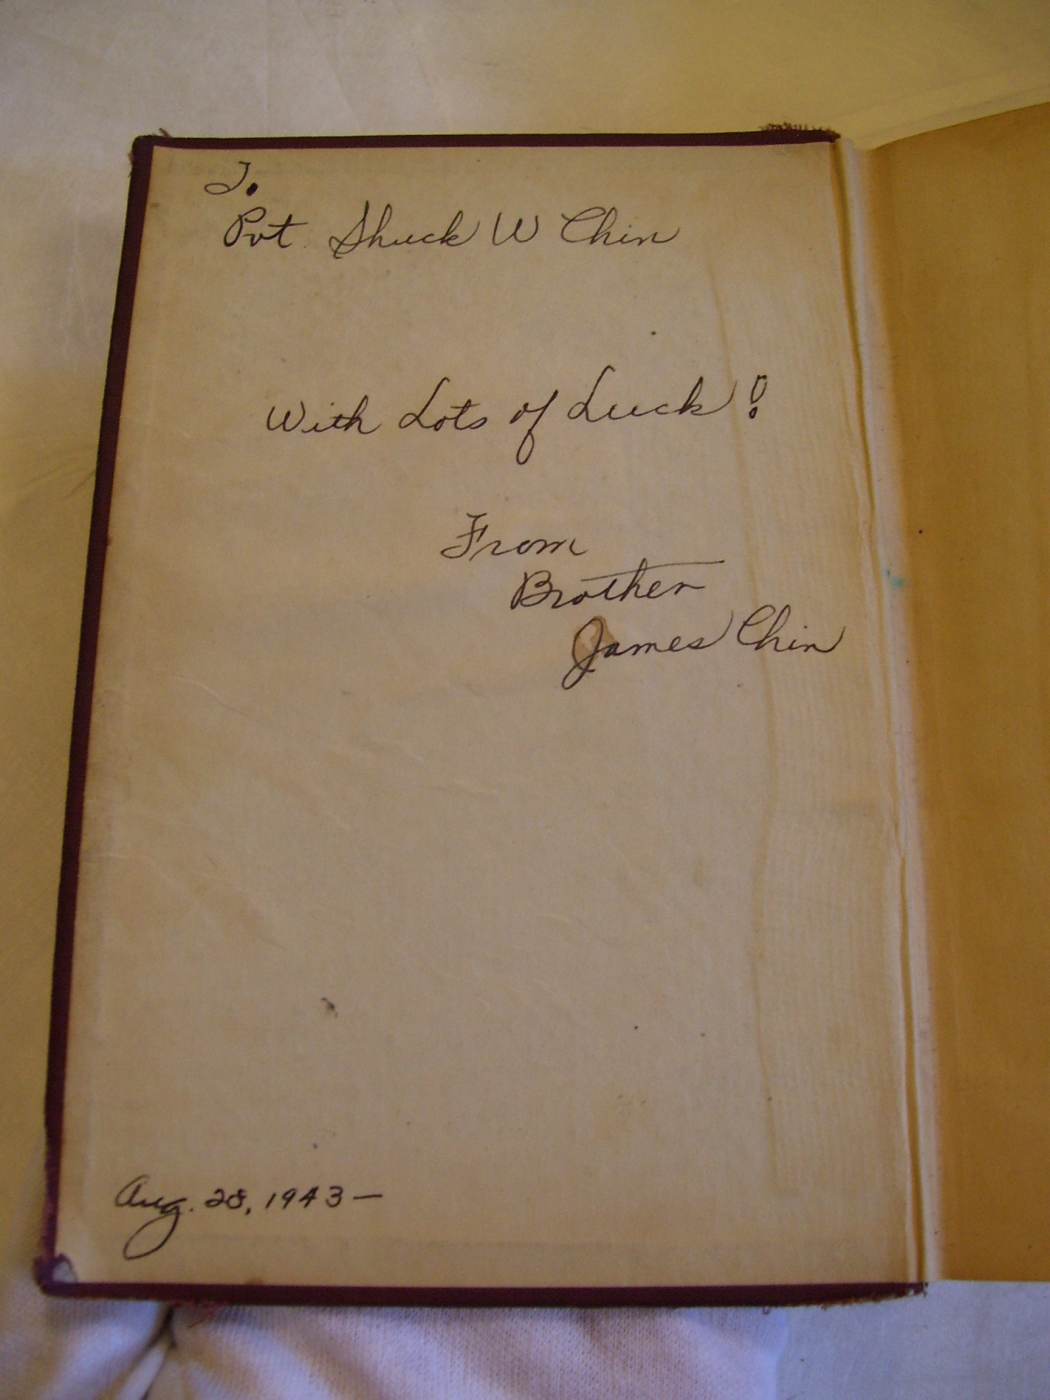 To
Pvt. Shuck W Chin
With Lots of Luck!
From
Brother
James Chin
Aug. 28, 1943—